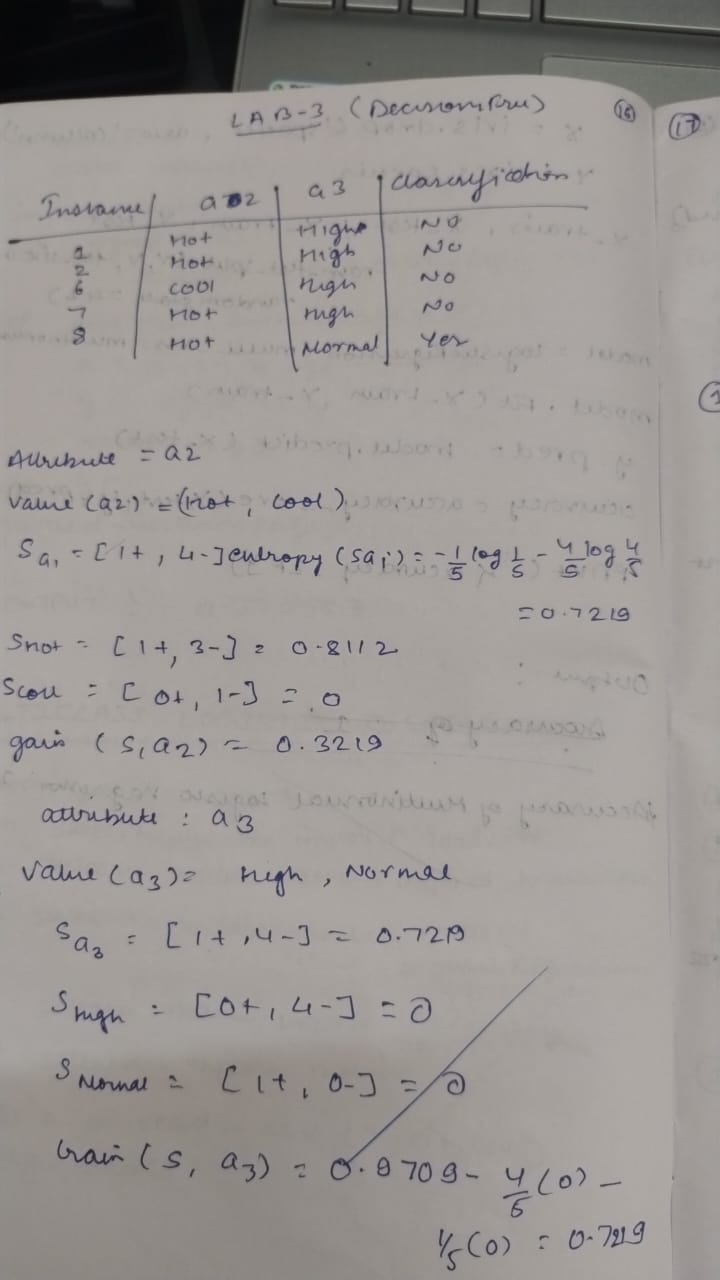 LAB-3 (Decision Tree) 16
17
Instance a2 a3 classification
1 Hot High No
2 Hot High No
6 cool High No
7 Hot High No
8 Hot Normal Yes
Attribute = a2
Value (a2) = (Hot, cool)
Sa1 = [1+, 4-] entropy (Sa1) = -1/5 log 1/5 - 4/5 log 4/5
= 0.7219
Shot = [1+, 3-] = 0.8112
Scool = [0+, 1-] = 0
gain (S, a2) = 0.3219
attribute : a3
Value (a3) = High, Normal
Sa3 = [1+, 4-] = 0.7219
SHigh = [0+, 4-] = 0
SNormal = [1+, 0-] = 0
Gain (S, a3) = 0.9709 - 4/5 (0) -
1/5 (0) = 0.7219